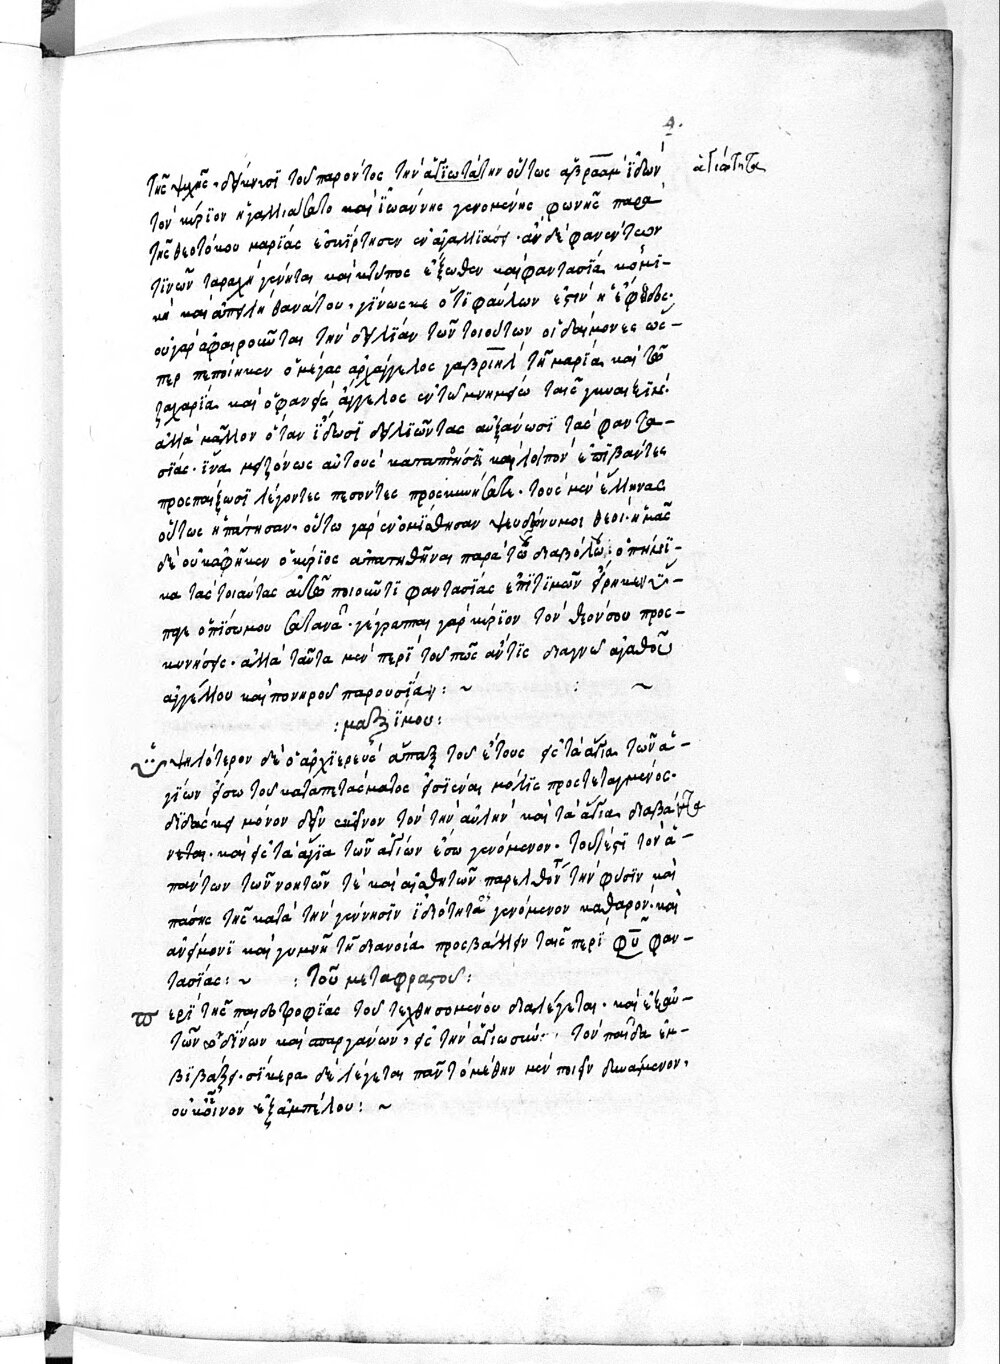 4.
τῆς ψυχῆς, δείκνυσι τοῦ παρόντος τὴν ἁγιωτάτην οὕτως ἀβραὰμ ἰδὼν ἁγιότητα
τὸν κύριον ἠγαλλιάσατο καὶ ἰωάννης γενομένης φωνῆς παρὰ
τῆς θεοτόκου μαρίας ἐσκίρτησεν ἐν ἀγαλλιάσει. ἂν δὲ φανέντων
τινῶν ταραχὴ γένηται καὶ κτύπος ἔξωθεν καὶ φαντασία κοσμι-
κὴ καὶ ἀπειλὴ θανάτου, γίνωσκε ὅτι φαύλων ἐστὶν ἡ ἔφοδος.
οὐ γὰρ ἀφαιροῦνται τὴν δειλίαν τῶν τοιούτων οἱ δαίμονες ὥσ-
περ πεποίηκεν ὁ μέγας ἀρχάγγελος γαβριὴλ τῇ μαρίᾳ καὶ τῷ
ζαχαρίᾳ καὶ ὁ φανεὶς ἄγγελος ἐν τῷ μνημείῳ ταῖς γυναιξίν.
ἀλλὰ μᾶλλον ὅταν ἴδωσι δειλιῶντας αὐξάνωσι τὰς φαντα-
σίας. ἵνα μειζόνως αὐτοὺς καταπτήσωσι καὶ λοιπὸν ἐπιβάντες
προσπαίξωσι λέγοντες πεσόντες προσκυνήσατε. τοὺς μὲν ἕλληνας
οὕτως ἠπάτησαν. οὕτω γὰρ ἐνομίσθησαν ψευδώνυμοι θεοί. ἡμᾶς
δὲ οὐκ ἀφῆκεν ὁ κύριος ἀπατηθῆναι παρὰ τοῦ διαβόλου. ὁπηνί-
κα τὰς τοιαύτας αὐτῷ ποιοῦντι φαντασίας ἐπιτιμῶν εἴρηκεν ὕ-
παγε ὀπίσω μου σατανᾶ. γέγραπται γὰρ κύριον τὸν θεόν σου προσ-
κυνήσεις. ἀλλὰ ταῦτα μὲν περὶ τοῦ πῶς ἄν τις διαγνῷ ἀγαθοῦ
ἀγγέλου καὶ πονηροῦ παρουσίαν: ~ : ~
:μαξίμου:
Ὑψηλότερον δὲ ὁ ἀρχιερεὺς ἅπαξ τοῦ ἔτους εἰς τὰ ἅγια τῶν ἁ-
γίων εἴσω τοῦ καταπετάσματος εἰσιέναι μόλις προστεταγμένος.
διδάσκει μόνον δεῖν ἐκεῖνον τὸν τὴν αὐλὴν καὶ τὰ ἅγια διαβάντα
νεται. καὶ εἰς τὰ ἅγια τῶν ἁγίων ἔσω γενόμενον. τουτέστι τὸν ἁ-
πάντων τῶν νοητῶν τὲ καὶ αἰσθητῶν παρελθόντα τὴν φύσιν καὶ
πάσης τῆς κατὰ τὴν γέννησιν ἰδιότητος γενόμενον καθαρὸν. καὶ
ἀνείμονι καὶ γυμνῇ τῇ διανοίᾳ προσβάλλειν ταῖς περὶ θυ φαν-
τασίας: ~ :τοῦ μεταφραστοῦ:
Περὶ τῆς παιδοτροφίας τοῦ τεχθησομένου διαλέγεται. καὶ ἐξ εὐ-
τῶν ὠδίνων καὶ σπαργάνων, εἰς τὴν ἁγιωσύνην τὸν παῖδα ἐμ-
βιβάζει. σίκερα δὲ λέγεται πᾶν τὸ μέθην μὲν ποιεῖν δυνάμενον,
οὐκ οἶνον ἐξ ἀμπέλου: ~